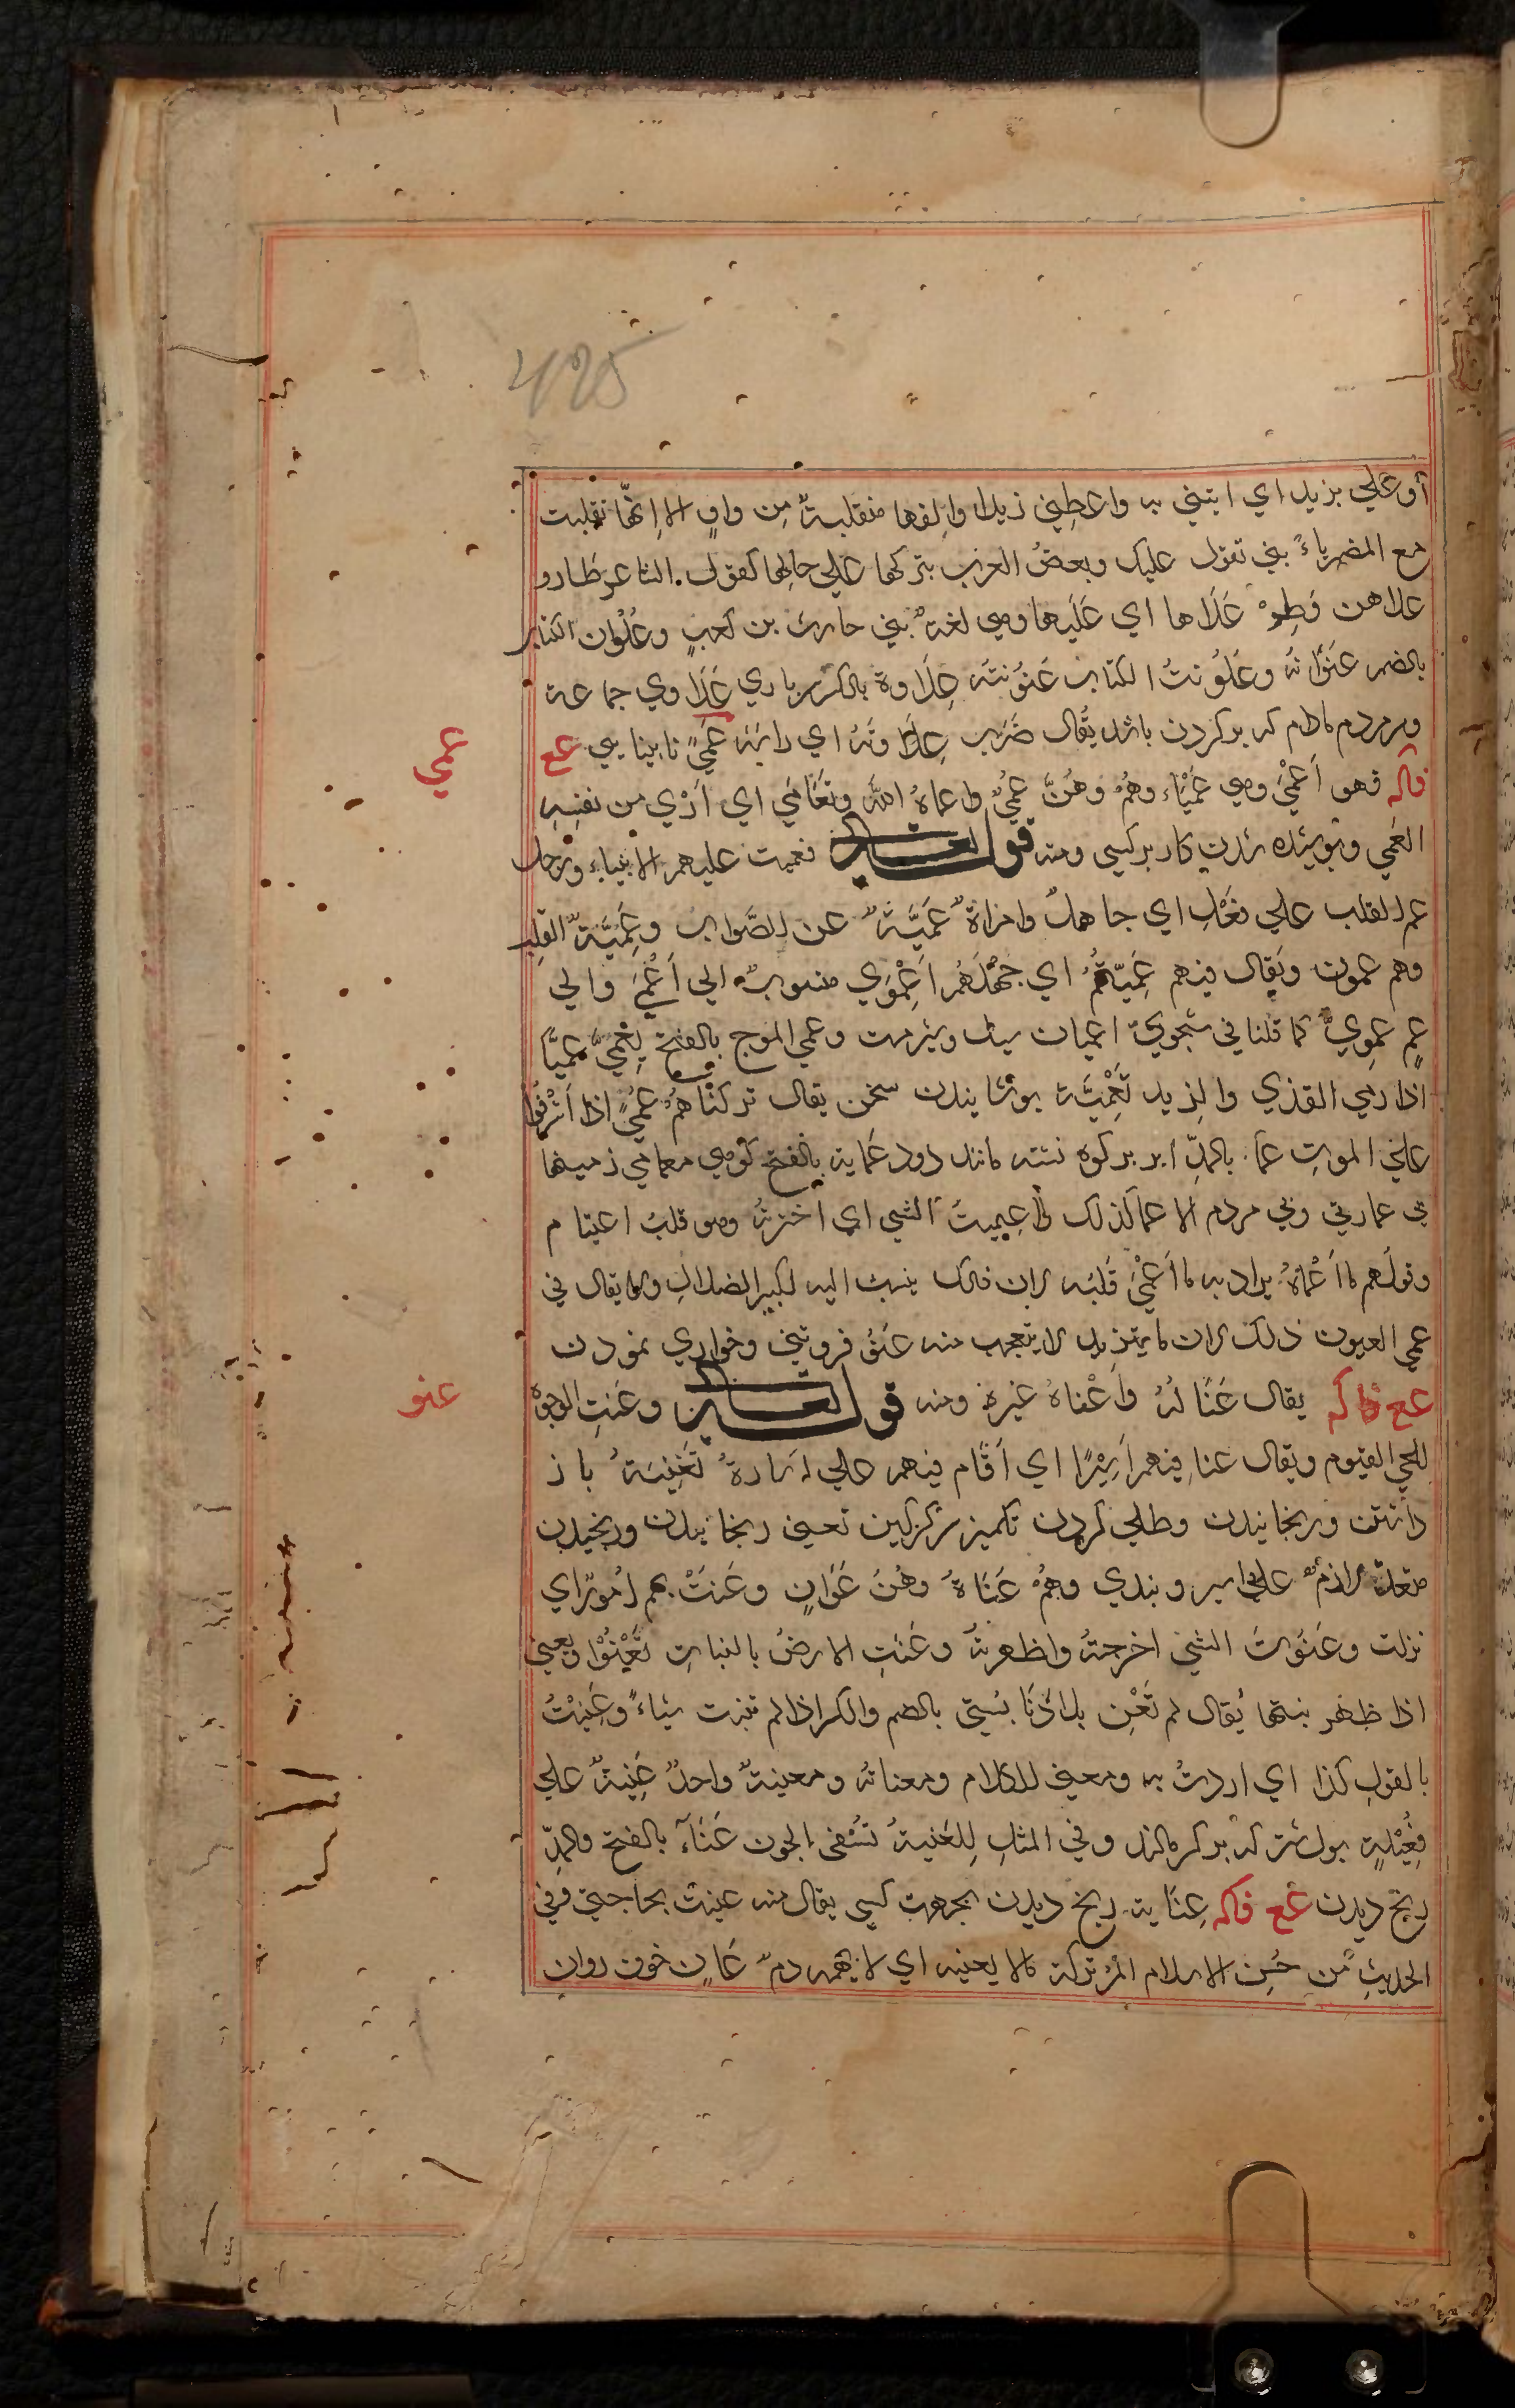 495
أو علي بزيد اي ايتني به واعطِني زيدا والفها منقلبةٌ مِن واوٍ الا انّها تقلبت
مع المضمر ياءً بني تقول عليك وبعضُ العرب بتركها علي حالِها كقول الشاعر طاروا
علاهن فَطِرْ عَلَاها اي عَلَيها وهي لغةٌ بني حارث بن كعبٍ وعُلْوان الكتاب
بالضم عنوانه وعَلْوَنتُ الكتاب عَنْوَنته عِلَاوة بالكسر باري عَلَاوي جماعة
وسر مردم مادام كه بر كردن باشد يُقال ضَرَب عِلَاوتَهُ اي راسَهُ عَمًي نابينايي عع
عمي
فاكه فهو أعْمَي وهي عَمْيَاء وهُمْ وهُنَّ عُمْيٌ واعماهُ الله وتَعَامَي اي اَرَي من نفسِهِ
العَمي وپوشيده شدن كار بر كسي ومنه قوله تعالي فعميت عليهم الانباء ورجل
عمِ القلب علي فَعِلٍ اي جاهلٌ وامراةٌ عَمِيَّةٌ عن الصَّواب وعَمِيَّةُ القلب
وهم عمون ويقال فيهم عَمِيّتُهُم اي جهْلُهُم اَعْمَوِي منسوبٌ الي اَعْمَي والي
عمٍ عمويٌّ كما قلنا في شجويّ اعميان سيل وشتر مست وعمي الموج بالفتح يَعْمِي عمياً
اذا رمي القذي والزبد تَعْمِيَة پوشانيدن سخن يقال تركناهُمْ عُمّي اذا اَشْرَفُوا
علي الموتِ عما بالمدّ ابر بر كوه نشسته مانند دود عَماية بالفتح كوهي معامي زمينها
بي عمارتي وبي مردم الاعما كذلك واعتميتُ الشي اي اخترته وهو قلبُ اعتيام
وقولهم ما اَعْماهُ يراد به ما اَعْمَي قَلبَه لان ذلك ينسب اليه لكبير الضلال ولا يقال في
عمي العيون ذلك لان ما يتزيد لا يتعجب منه عنو فروتني وخواري نمودن
عنو
عع فاكه يقال عَنَا لَهُ وَاَعْناهُ غيره ومنه قوله تعالي وعَنتِ الوجوهُ
للحي القيوم ويقال عنا فيهم اَسِيْرًا اي اَقَام فيهم علي اسارةٍ تَعْنِيَةٌ باز
داشتن ورنجانيدن وطلي كردن بكميز شتر گرگين تعني رنجانيدن ورنجيدن
متعدّ لازمٌ عاني اسير وبندي وهُمْ عُنَاةٌ وهُنَ عَوَانٍ وعَنَتْ بهم اُمورٌ اي
نزلت وعَنَوْتُ الشي اخرجتُهُ واظهرتهُ وعَنَتِ الارضُ بالنباتِ تَعْنُوْا وتعني
اذا ظهر نبتها يُقال لم تَعْنِ بلادُنَا بشيَ بالضم والكسر اذا لم تنبت شيئاً وعَنَيْتُ
بالقولِ كذا اي اردتُ به ومعني الكلام ومعناته ومعنيتهٌ واحدٌ عَنِيَّةٌ علي
فَعِيْلةٍ بول شتر كه بر گر مالند وفي المثلِ العَنِيَّةُ تشْفي الجرب عَنَآء بالفتح والمدّ
رنج ديدن عع فاكه عِنَاية رنج ديدن بجهت كسي يقال منه عنيتُ بحاجتي وفي
الحديثِ مِن حُسنِ الاسلام المرْءِ تركه مالا يعنيه اي لا يهمه دمٌ عَانٍ خون روان